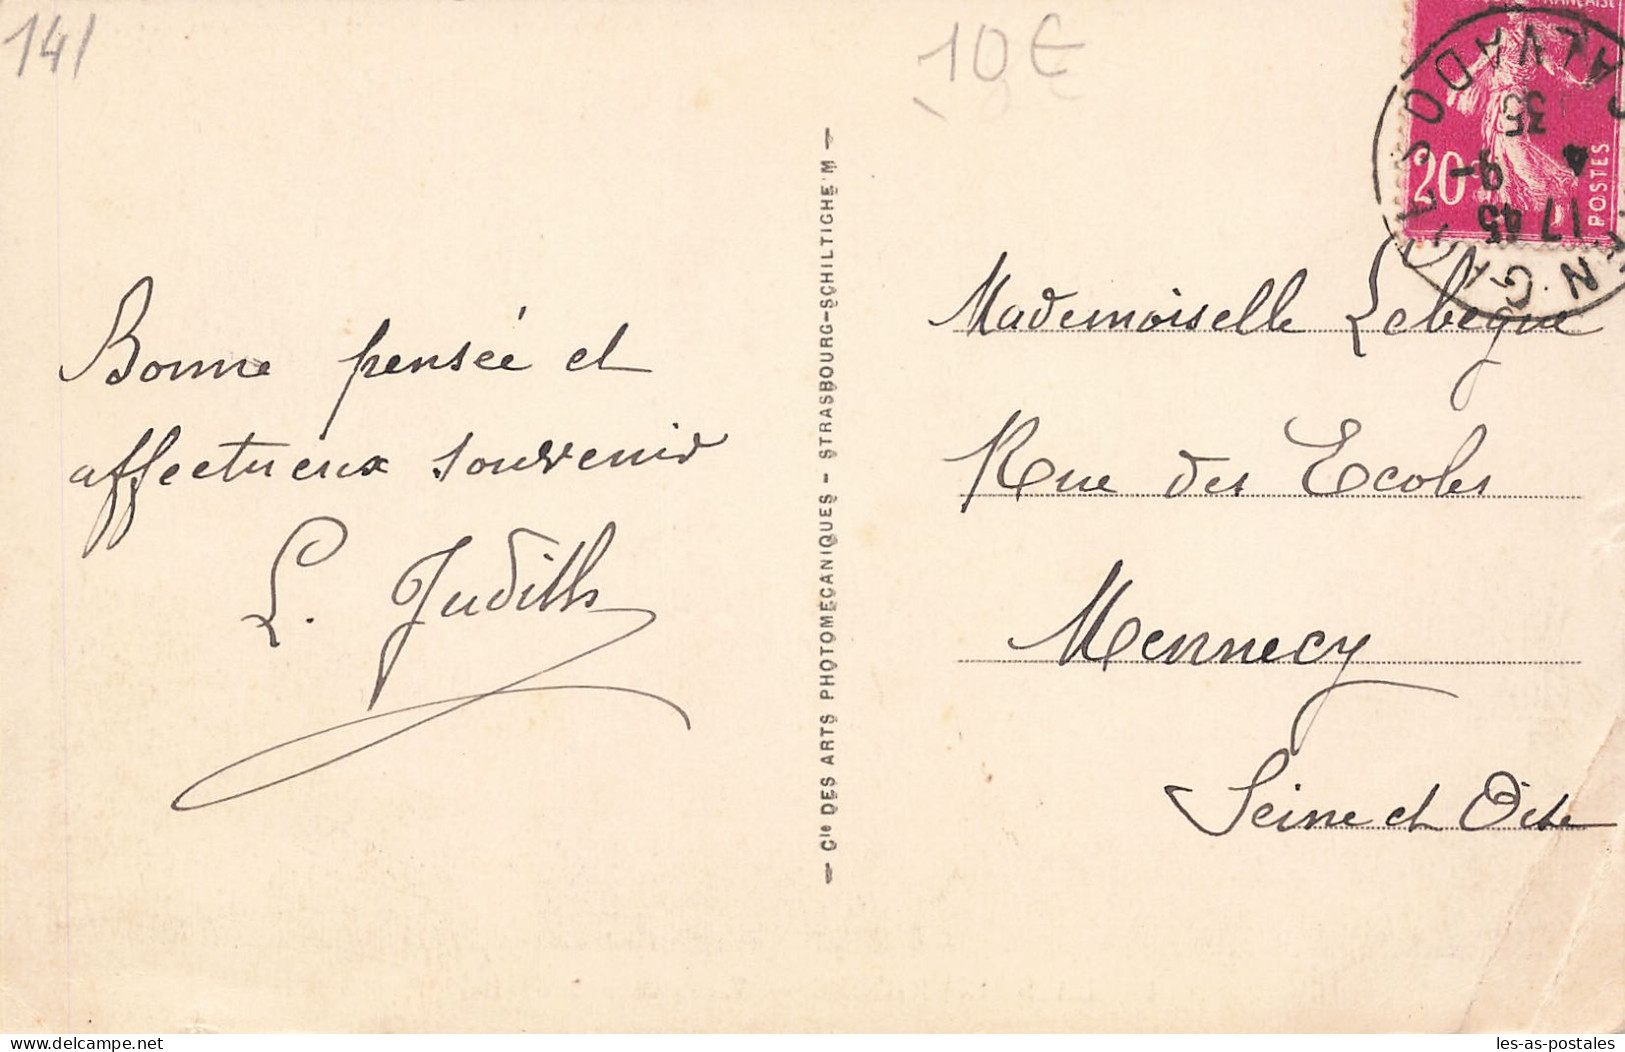 141
10€
Bonne pensée et
affectueux souvenir
L. Judith
— Cie DES ARTS PHOTOMECANIQUES - STRASBOURG-SCHILTIGHEIM —
FRANÇAISE
20
POSTES
CAEN GARE
CALVADOS
17 45
4 -9
35
Mademoiselle Lebegue
Rue des Ecoles
Mennecy
Seine et Oise
Delcampe.net
les-as-postales